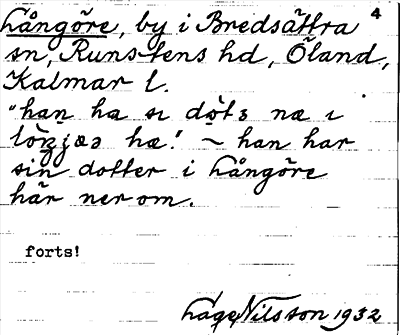 4
Långöre, by i Bredsättra
sn, Runstens hd, Öland,
Kalmar l.
"han ha sı dòtɜ næ ı
hæ! ~ han har
sin dotter i Långöre
här nerom.
forts!
Låge Nilsson 1932